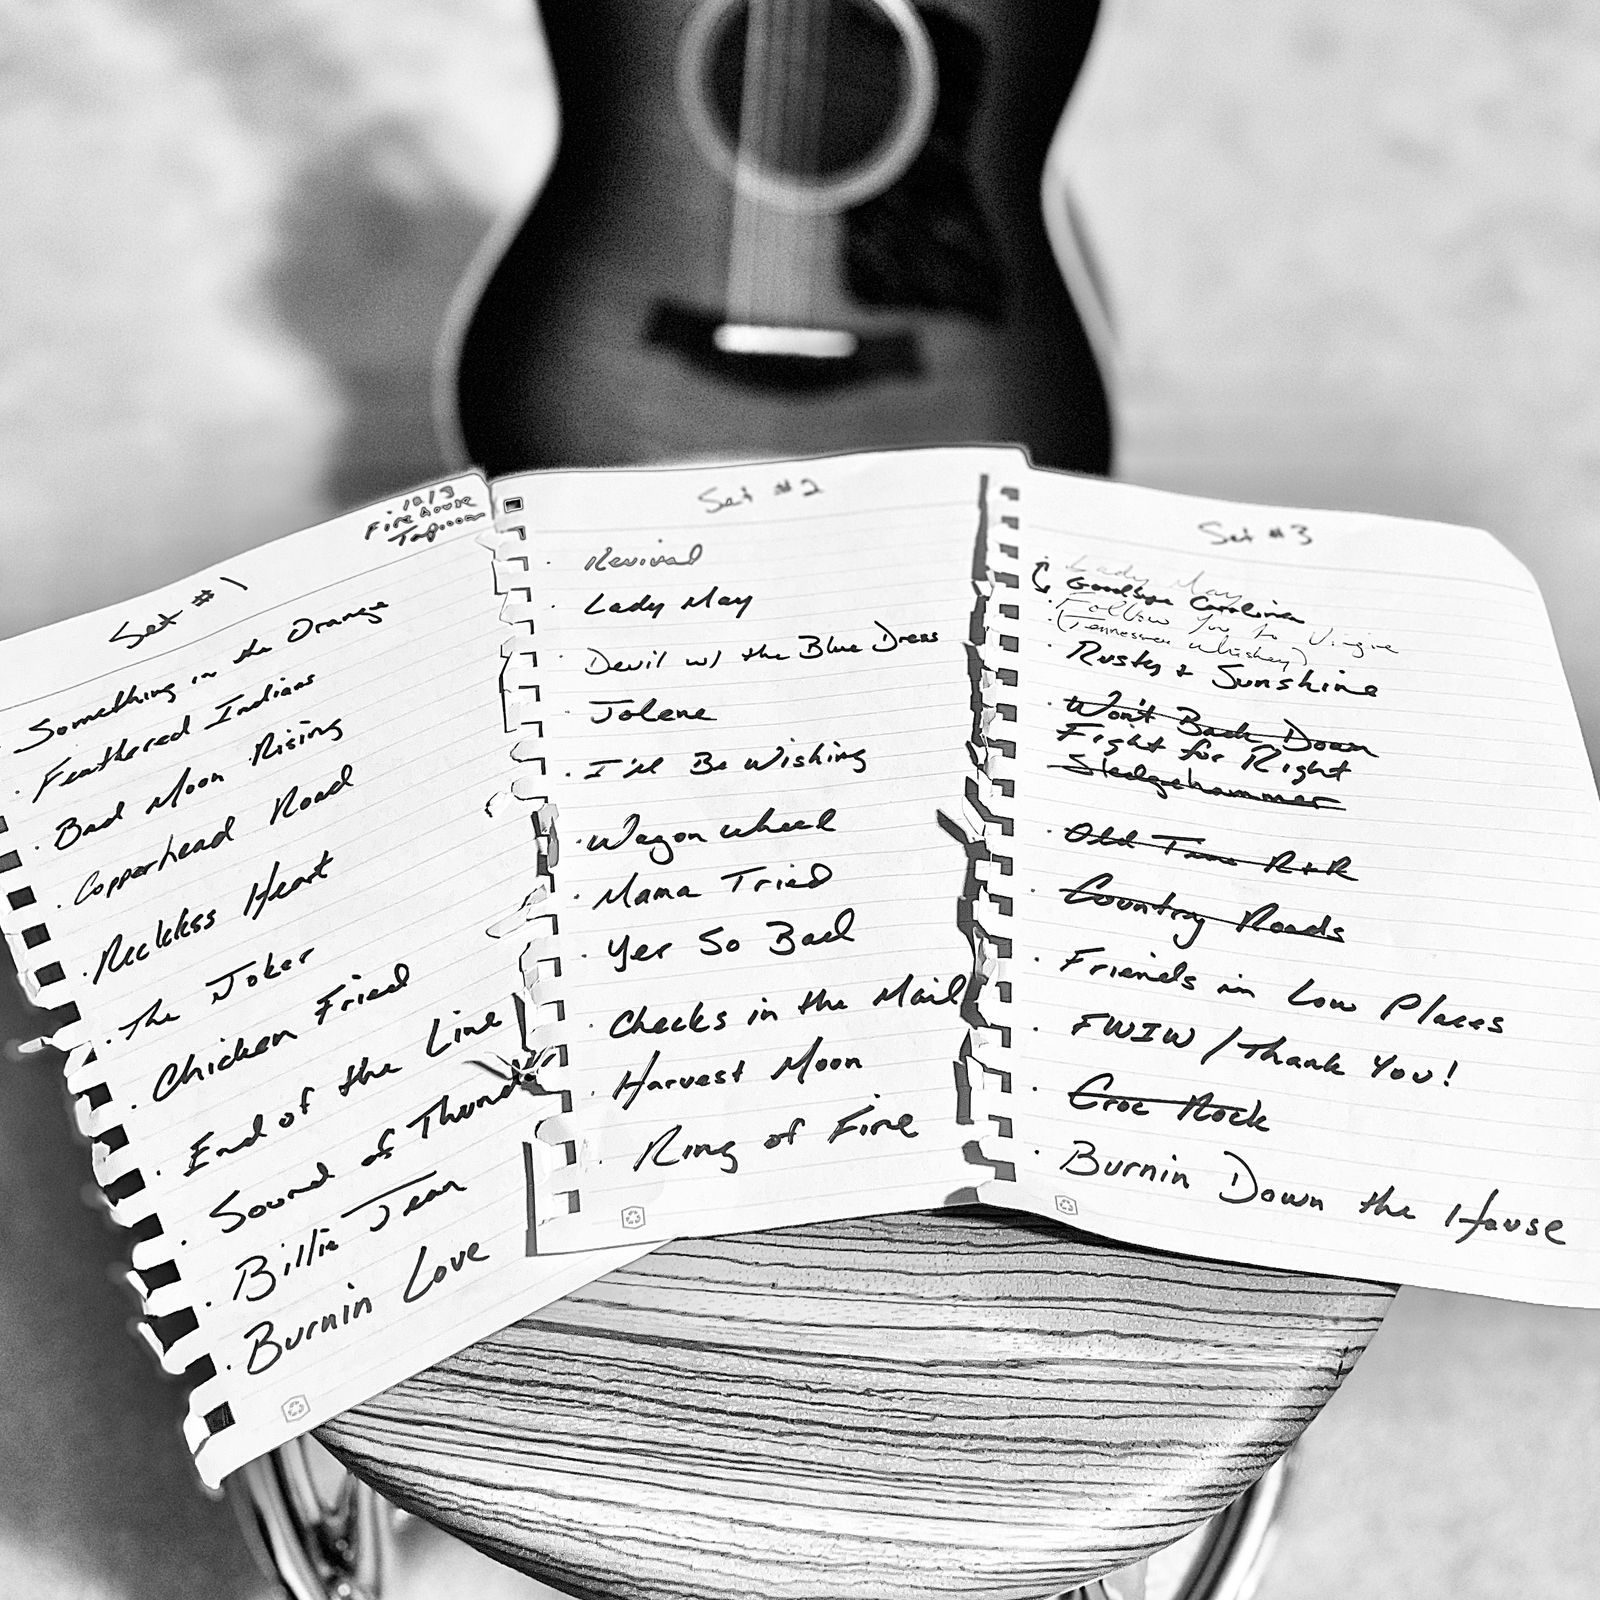 12/3
Firehouse
Taproom
Set #1
· Something in the Orange
· Feathered Indians
· Bad Moon Rising
· Copperhead Road
· Reckless Heart
· The Joker
· Chicken Fried
· End of the Line
· Sound of Thunder
· Billie Jean
· Burnin Love
Set #2
· Revival
· Lady May
· Devil w/ the Blue Dress
· Jolene
· I'll Be Wishing
· Wagon Wheel
· Mama Tried
· Yer So Bad
· Checks in the Mail
· Harvest Moon
· Ring of Fire
Set #3
Lady May
Goodbye Carolina
· Follow You to Virgie
· (Tennessee Whiskey)
· Rusty + Sunshine
· Won't Back Down
Fight for Right
Sledgehammer
· Old Time R+R
· Country Roads
· Friends in Low Places
· FWIW / Thank You!
· Croc Rock
· Burnin Down the House